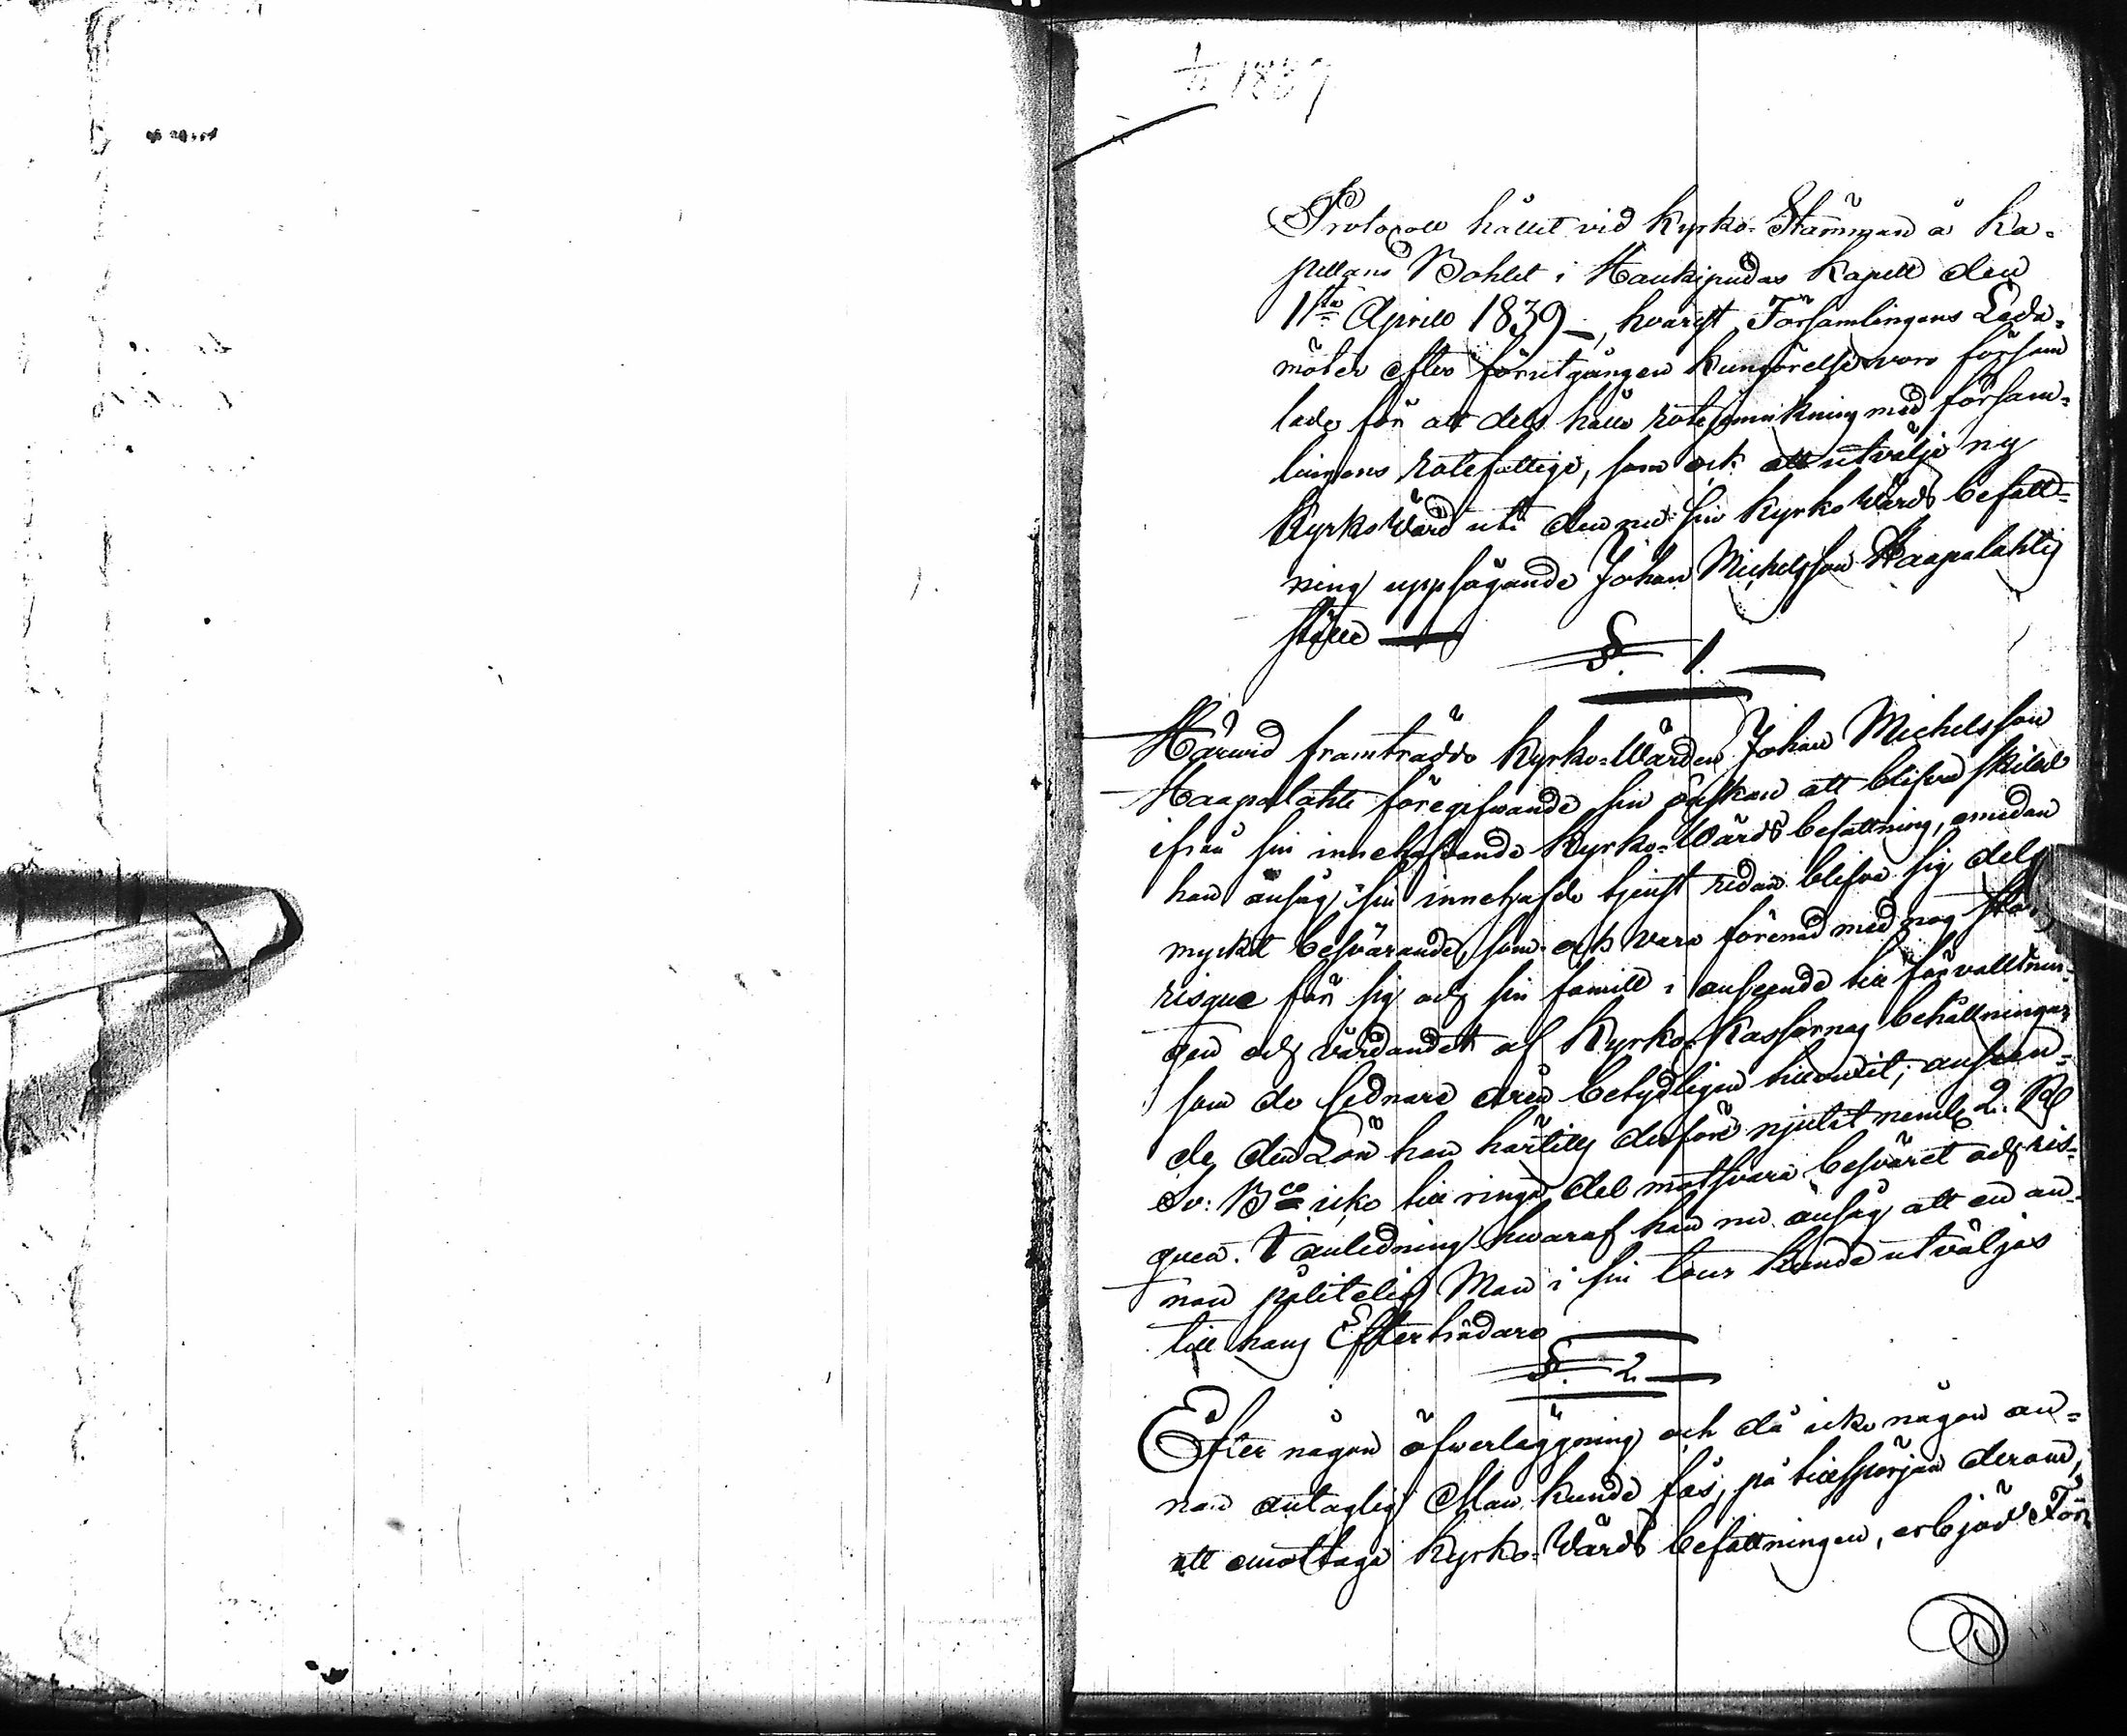 1839
Protocoll hållit vid Kyrko-Stämman å Ka-
pellans Bohlet i Haukipudas Kapell den
1sta Aprill 1839, hvarest Församlingens Leda-
möter efter förutgången kungörelse voro försam
lade för att dels hålla rotejemnkning med försam-
lingens rotefattige, som ock att utvälja ny
Kyrko Värd uti den nu sin Kyrko Värds befatt-
ning uppsägande Johan Michelsson Haapalahti
ställe
§. 1.
Härvid framträdde Kyrko-Värden Johan Michelsson
Haapalahti föregifvande sin önskan att blifva skild
ifrån sin innehafvande Kyrko-Värds befattning, emedan
han ansåg sin innehafde tjenst redan blifva sig dels
mycket besvärande, som och vara förenad med nog stor
risque för sig och sin famill i anseende till förvalltnin-
gen och vårdandet af Kyrko-Kassornas behållningar
som de sednare åren betydligen tillväxit; anseen-
de den Lön han härtills derföre njutit neml. 2 R
Sv: Bco icke till ringa del motsvara besväret och ris-
quen. I anledning hvaraf han nu ansåg att en an-
nan pålitelig Man i sin tour kunde utväljas
till hans Efterträdare
§. 2
Efter någon öfverläggning och då icke någon an-
nan antaglig Man kunde fås, på tillspörjan derom,
att emottaga Kyrko-Värds befattningen, erbjöd För